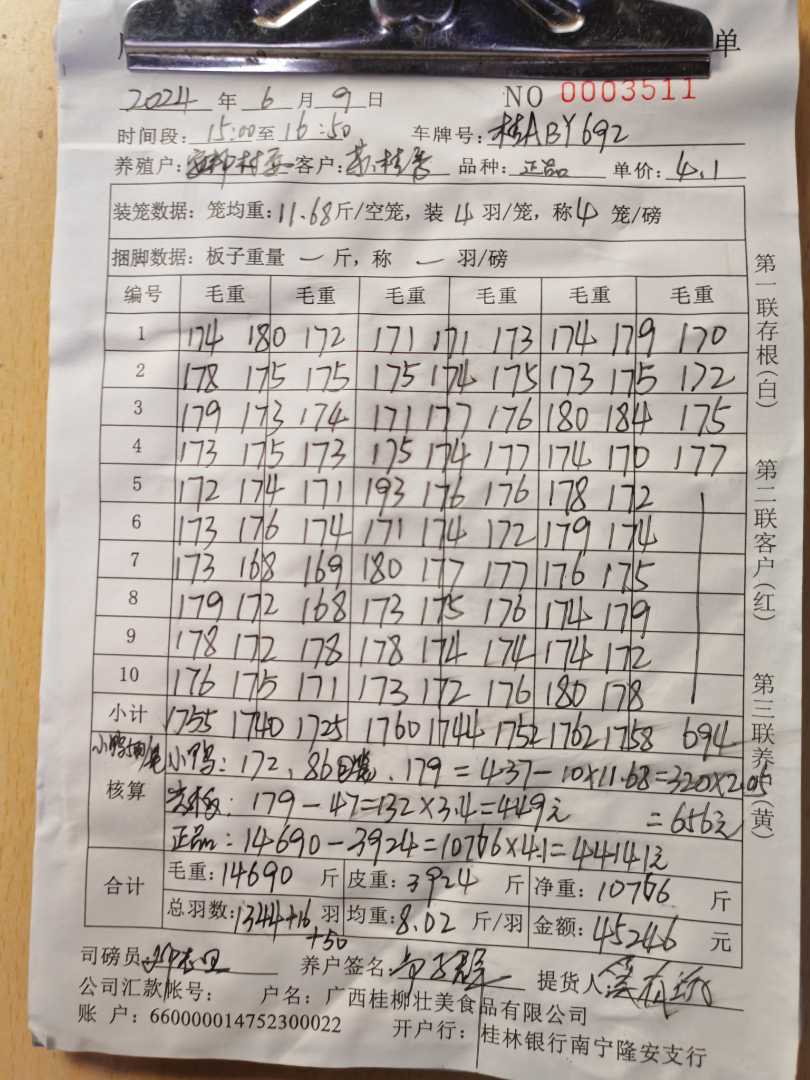 单
2024年6月9日 NO 0003511
时间段:15:00至16:50 车牌号:桂ABY692
养殖户: 客户:苏桂香 品种:正品 单价:4.1
装笼数据:笼均重:11.68斤/空笼,装4羽/笼,称4笼/磅
捆脚数据:板子重量 一 斤,称 一 羽/磅
编号 毛重 毛重 毛重 毛重 毛重 毛重
1 174 180 172 171 171 173 174 179 170
2 178 175 175 175 174 175 173 175 172
3 179 173 174 171 177 176 180 184 175
4 173 175 173 175 174 177 174 170 177
5 172 174 171 193 176 176 178 172
6 173 176 174 171 174 172 179 174
7 173 168 169 180 177 177 176 175
8 179 172 168 173 175 176 174 179
9 178 172 178 178 174 174 174 172
10 176 175 171 173 172 176 180 178
小计 1755 1740 1725 1760 1744 1752 1762 1758 694
核算
小鸭:172、86、179=437-10×11.68=320×2.05
179-47=132×3.4=449元 =656元
正品:14690-3924=10766×4.1=44141元
合计
毛重:14690斤 皮重:3924斤 净重:10766斤
总羽数:1344+16羽 均重:8.02斤/羽 金额:45246元
+50
司磅员 养户签名 提货人
公司汇款帐号: 户名:广西桂柳壮美食品有限公司
账户:660000014752300022 开户行:桂林银行南宁隆安支行
第一联存根(白)
第二联客户(红)
第三联养户(黄)